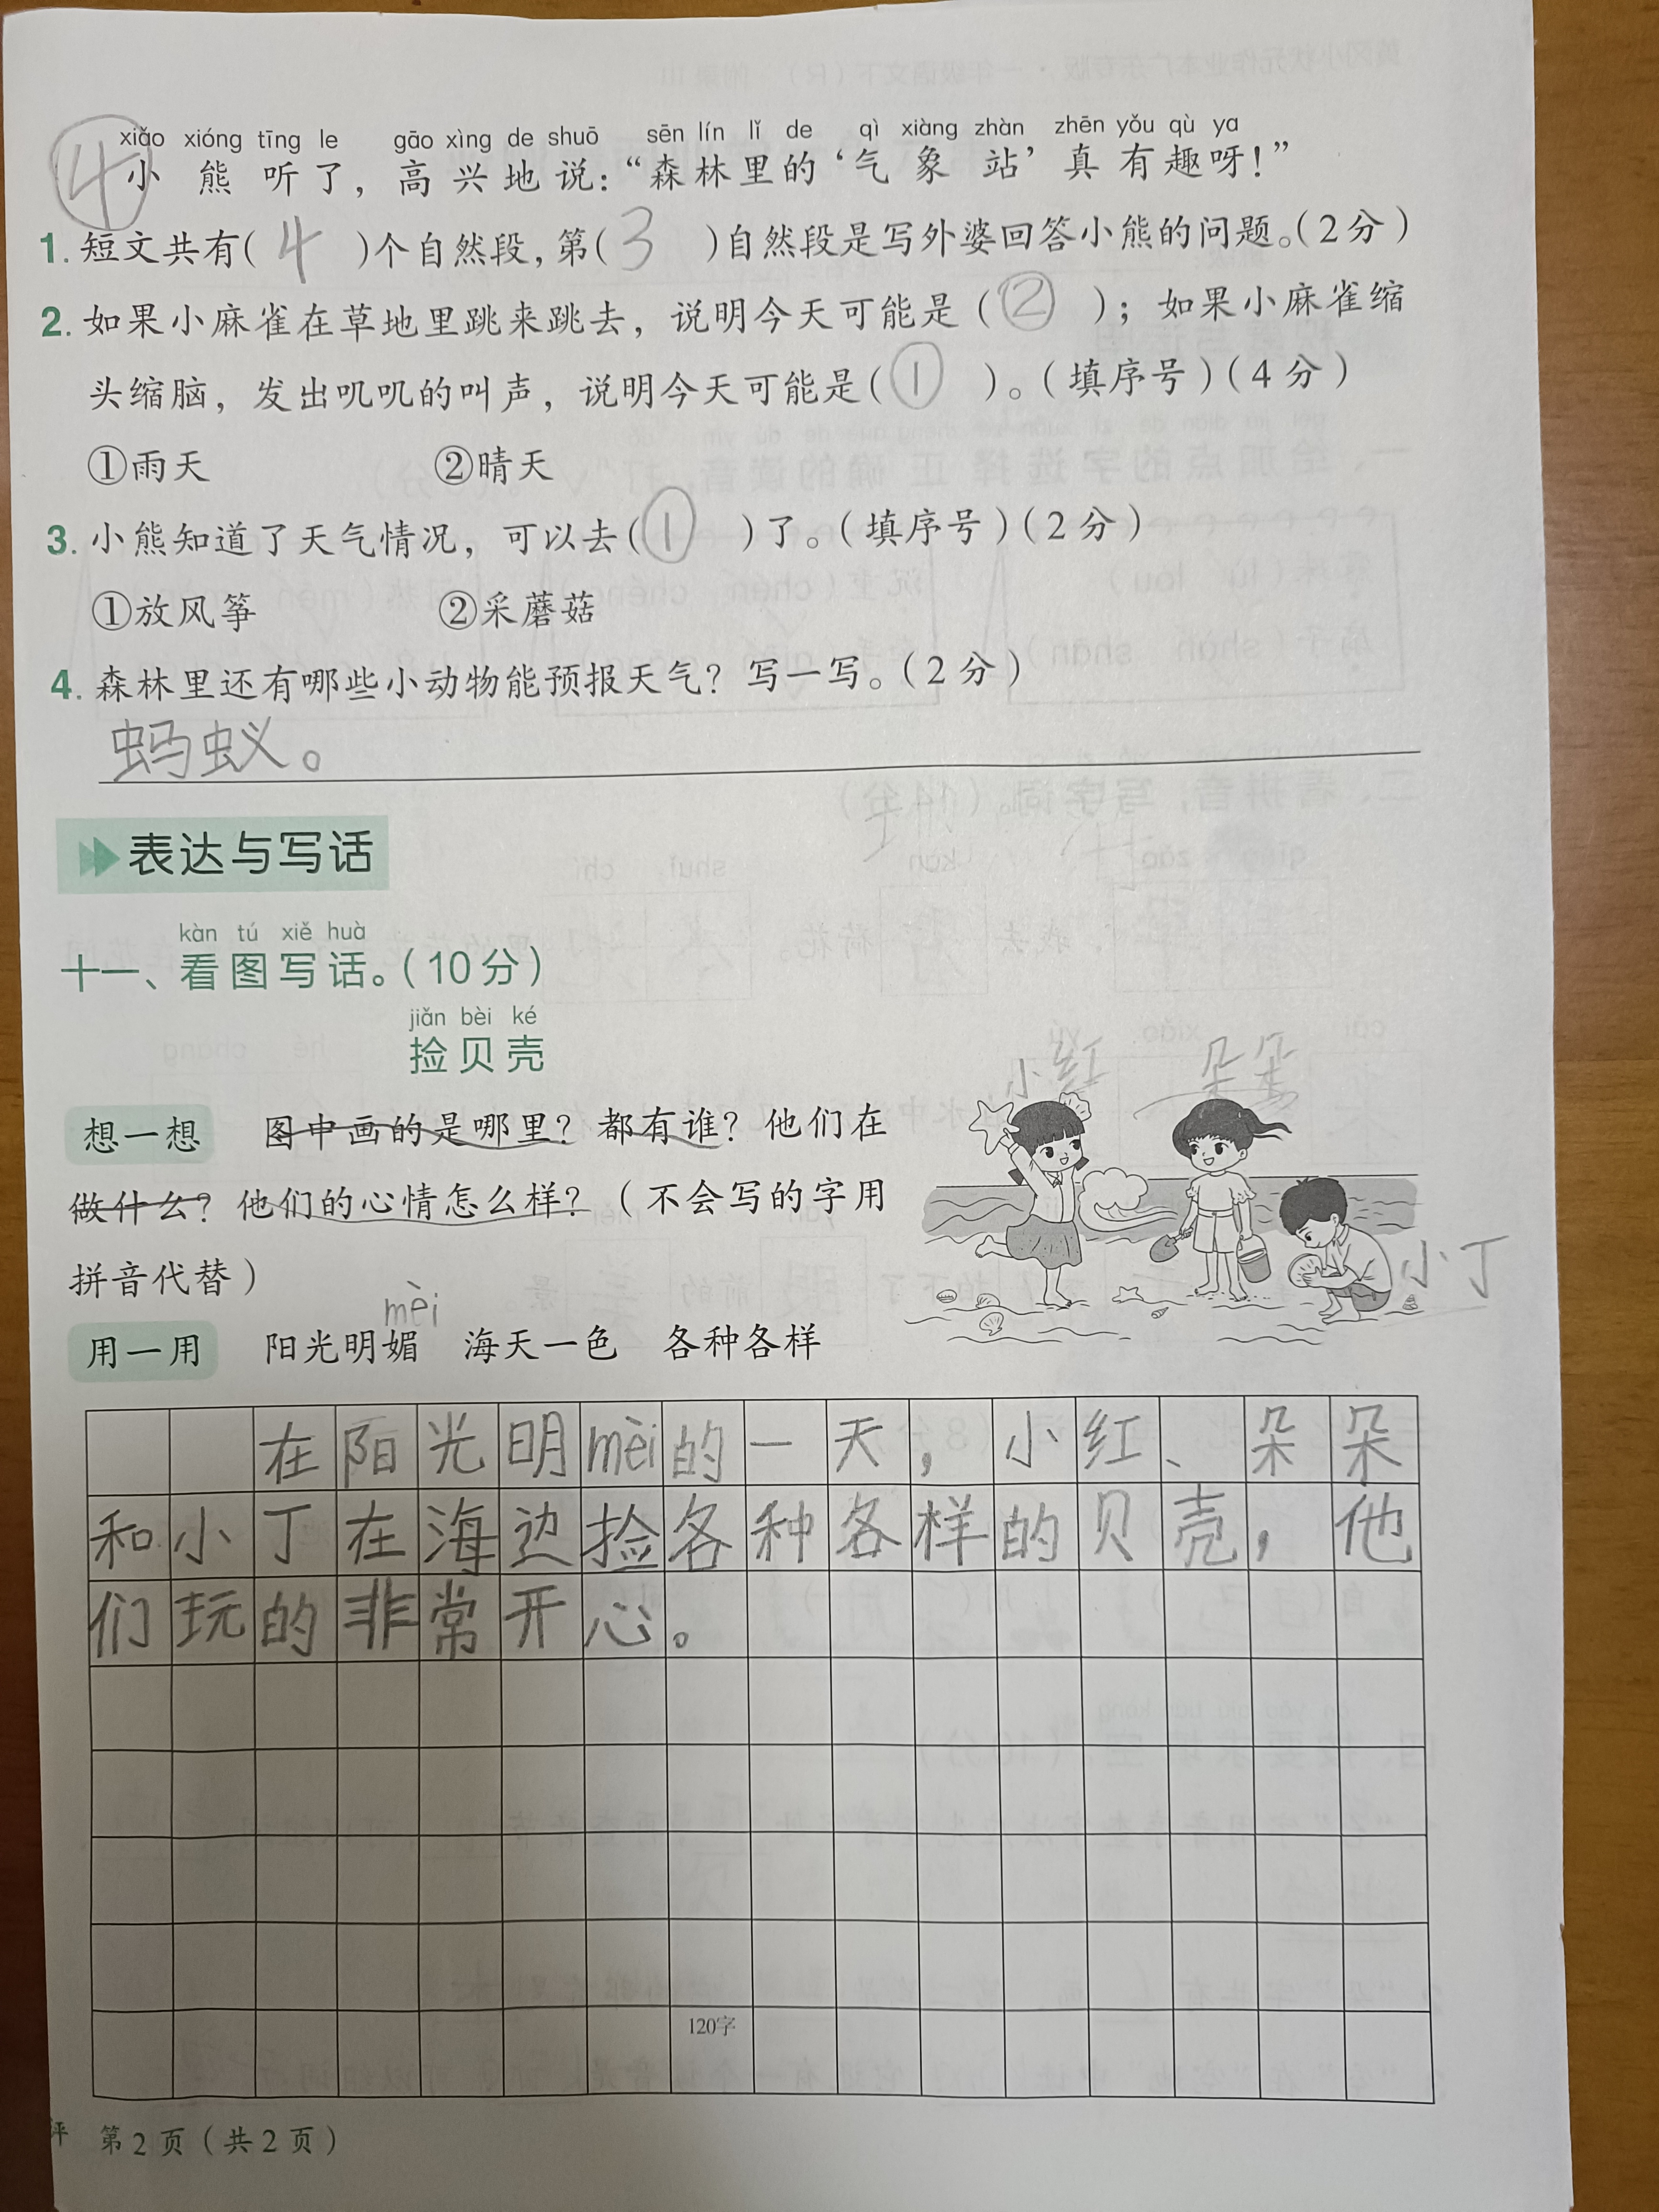 xiǎo xióng tīng le gāo xìng de shuō sēn lín lǐ de qì xiàng zhàn zhēn yǒu qù ya
④ 小熊听了，高兴地说：“森林里的‘气象站’真有趣呀！”
1. 短文共有( 4 )个自然段，第( 3 )自然段是写外婆回答小熊的问题。(2分)
2. 如果小麻雀在草地里跳来跳去，说明今天可能是( ② )；如果小麻雀缩
头缩脑，发出叽叽的叫声，说明今天可能是( ① )。(填序号)(4分)
①雨天 ②晴天
3. 小熊知道了天气情况，可以去( ① )了。(填序号)(2分)
①放风筝 ②采蘑菇
4. 森林里还有哪些小动物能预报天气？写一写。(2分)
蚂蚁。
表达与写话
kàn tú xiě huà
十一、看图写话。(10分)
jiǎn bèi ké
捡贝壳
小红 朵朵
想一想 图中画的是哪里？都有谁？他们在
做什么？他们的心情怎么样？(不会写的字用
拼音代替)
小丁
mèi
用一用 阳光明媚 海天一色 各种各样
在阳光明mèi的一天，小红、朵朵
和小丁在海边捡各种各样的贝壳，他
们玩的非常开心。
120字
评 第2页(共2页)